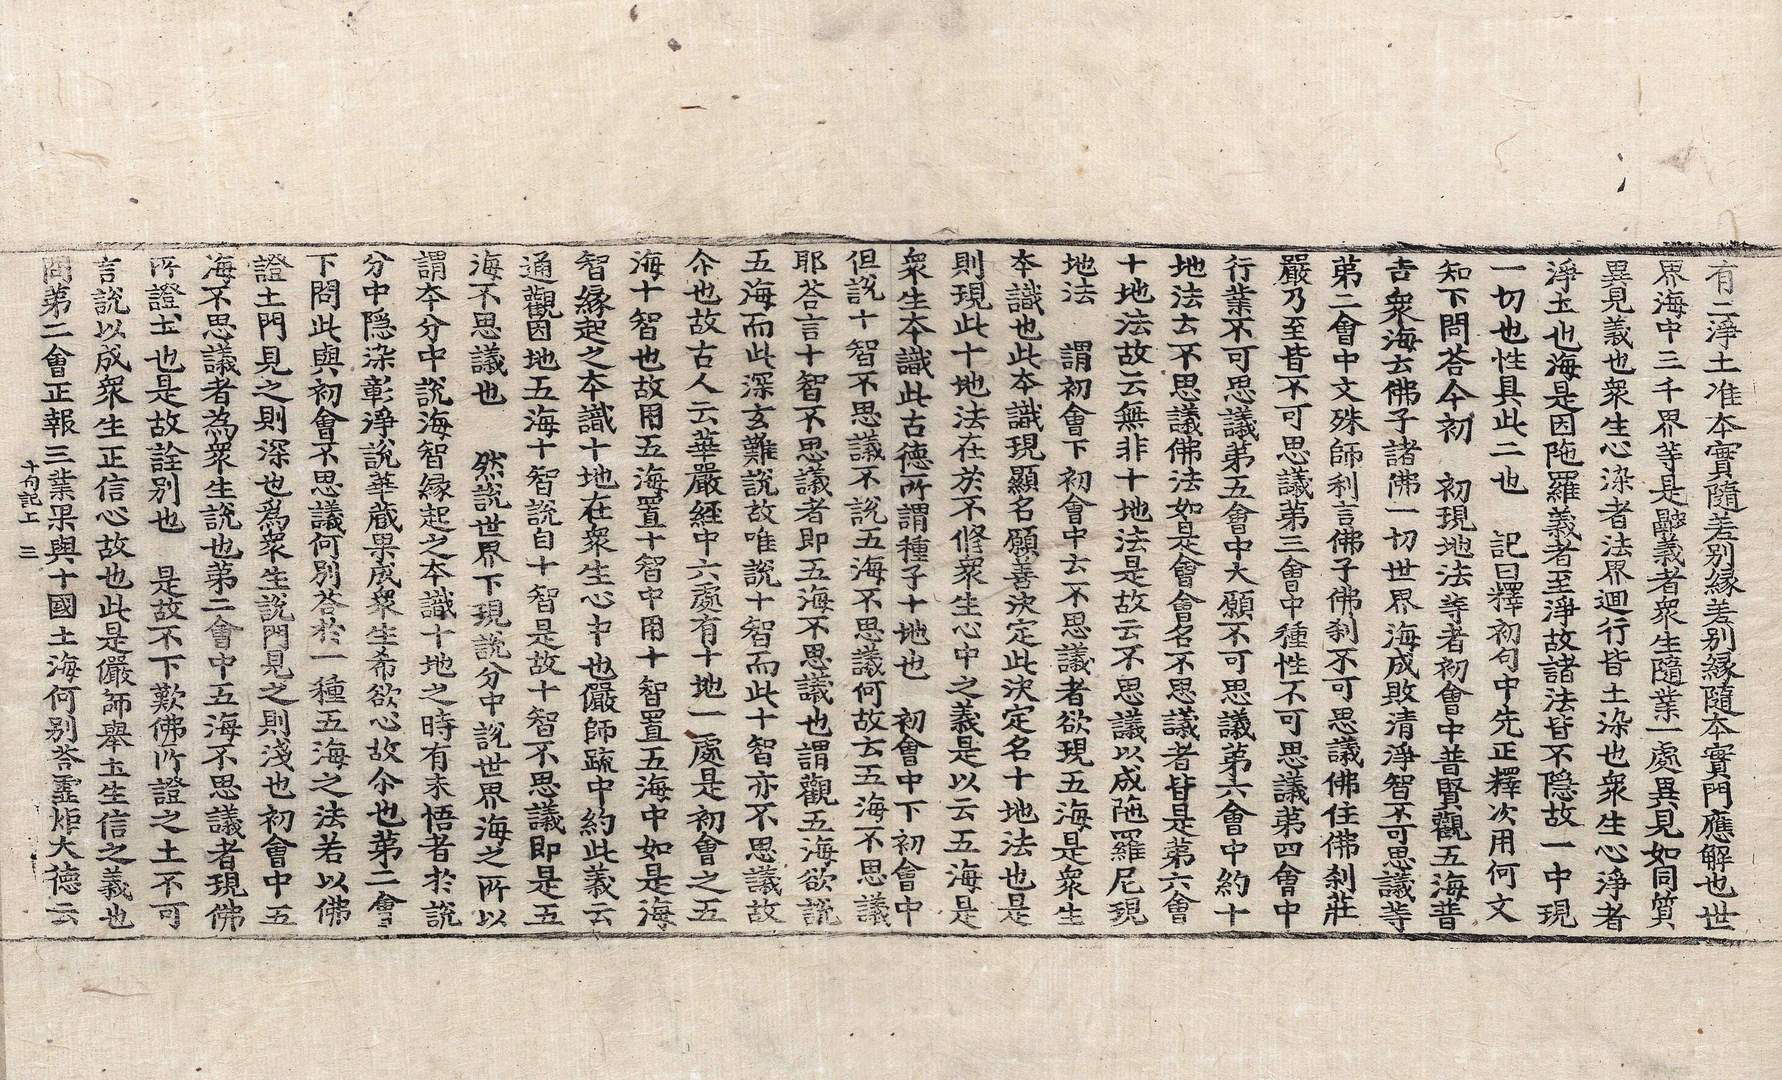 有二淨土准本實隨差別緣差別緣隨本實門應解也世
界海中三千界等是翳義者衆生隨業一處異見如同質
異見義也衆生心染者法界迴行皆土染也衆生心淨者
淨土也海是因陁羅義者至淨故諸法皆不隱故一中現
一切也性具此二也　記曰釋初句中先正釋次用何文
知下問荅今初　初現地法等者初會中普賢觀五海普
吉衆海云佛子諸佛一切世界海成敗清淨智不可思議等
苐二會中文殊師利言佛子佛刹不可思議佛住佛刹莊
嚴乃至皆不可思議苐三會中種性不可思議苐四會中
行業不可思議苐五會中大願不可思議苐六會中約十
地法云不思議佛法如是會會名不思議者皆是苐六會
十地法故云無非十地法是故云不思議以成陁羅尼現
地法　謂初會下初會中云不思議者欲現五海是衆生
本識也此本識現顯名願善決定此決定名十地法也是
則現此十地法在於不修衆生心中之義是以云五海是
衆生本識此古德所謂種子十地也　初會中下初會中
但說十智不思議不說五海不思議何故云五海不思議
耶荅言十智不思議者即五海不思議也謂觀五海欲說
五海而此深玄難說故唯說十智而此十智亦不思議故
尒也故古人云華嚴經中六處有十地一處是初會之五
海十智也故用五海置十智中用十智置五海中如是海
智緣起之本識十地在衆生心中也儼師䟽中約此義云
通觀因地五海十智說自十智是故十智不思議即是五
海不思議也　然說世界下現說分中說世界海之所以
謂本分中說海智緣起之本識十地之時有未悟者於說
分中隱染彰淨說華藏果成衆生希欲心故尒也苐二會
下問此與初會不思議何別荅於一種五海之法若以佛
證土門見之則深也爲衆生說門見之則淺也初會中五
海不思議者為衆生說也苐二會中五海不思議者現佛
所證土也是故詮別也　是故不下歎佛所證之土不可
言說以成衆生正信心故也此是儼師舉土生信之義也
問苐二會正報三業果與十國土海何別荅靈炬大德云
十句記上　三